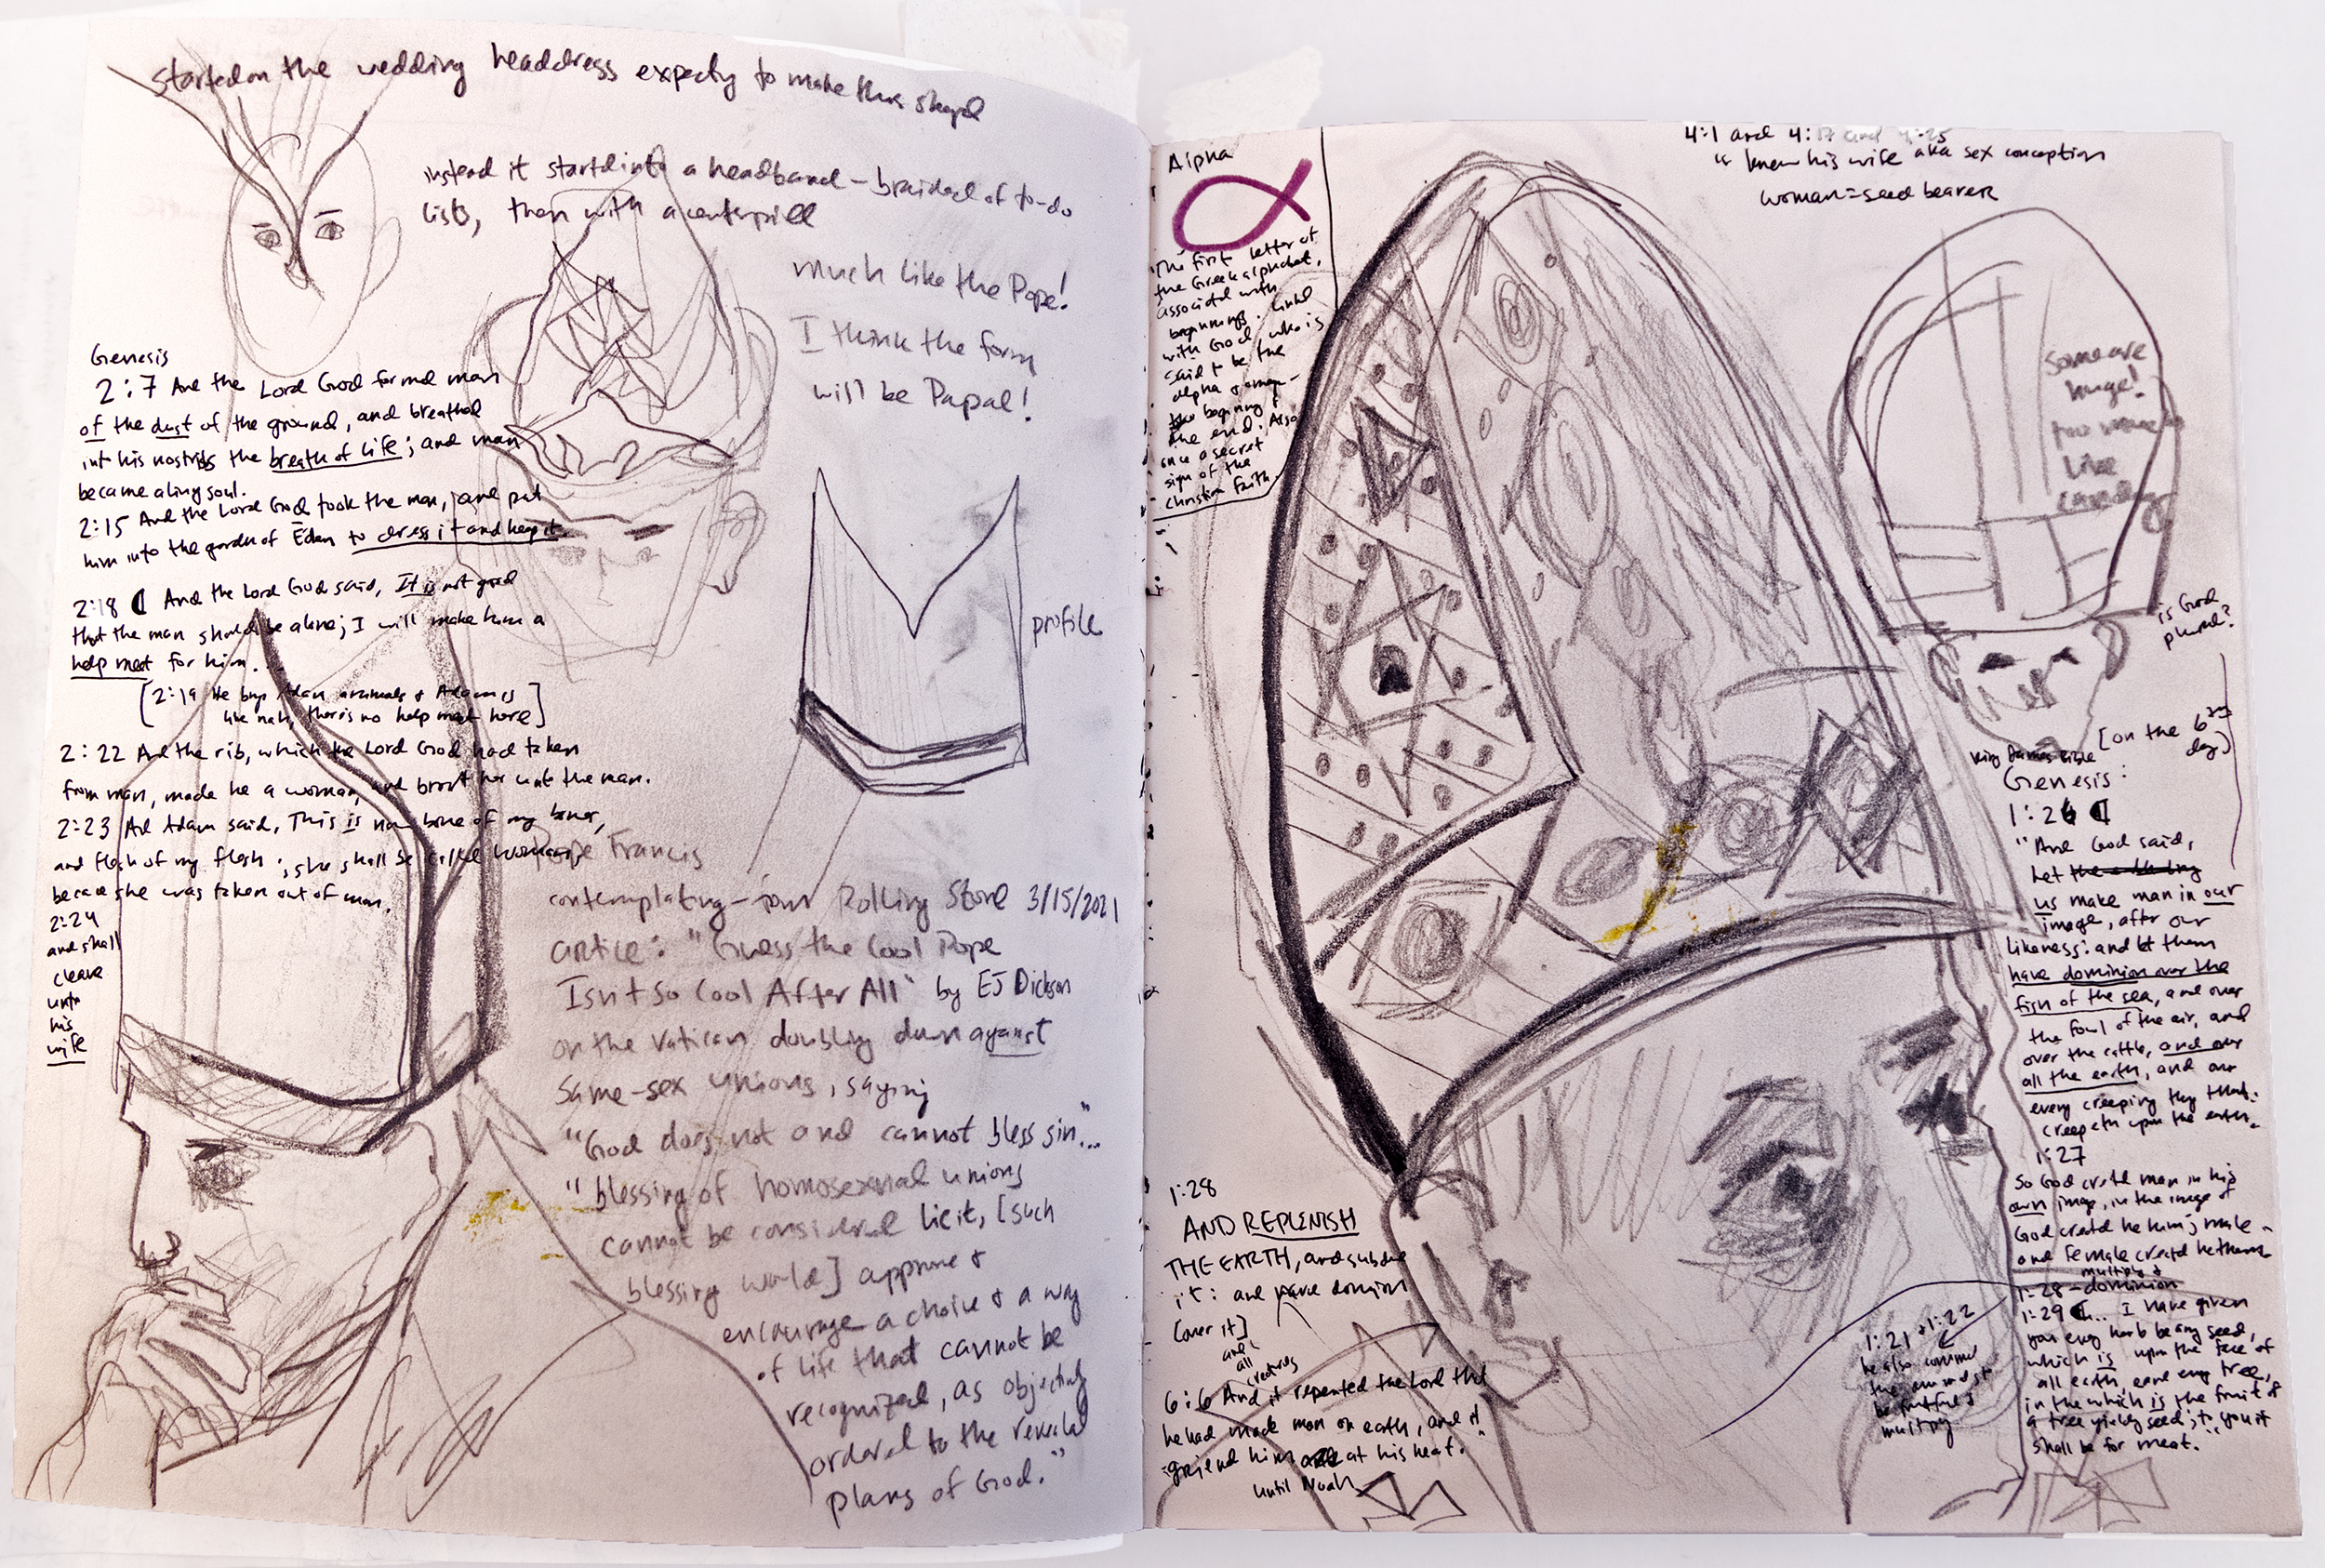 started on the wedding headdress expecting to make this shape
instead it started into a headband – braided of to-do
lists, then with a centerpiece
much like the Pope!
I think the form
will be Papal!
profile
Genesis
2:7 And the Lord God formed man
of the dust of the ground, and breathed
into his nostrils the breath of life; and man
became a living soul.
2:15 And the Lord God took the man, and put
him into the garden of Eden to dress it and keep it.
2:18 And the Lord God said, It is not good
that the man should be alone; I will make him a
help meet for him.
[2:19 He brings Adam animals & Adam is
like nah, there's no help meet here]
2:22 And the rib, which the Lord God had taken
from man, made he a woman, and brought her unto the man.
2:23 And Adam said, This is now bone of my bones,
and flesh of my flesh; she shall be called woman,
because she was taken out of man.
2:24
and shall
cleave
unto
his
wife
Pope Francis
contemplating – from Rolling Stone 3/15/2021
article: "Guess the Cool Pope
Isn't So Cool After All" by EJ Dickson
on the Vatican doubling down against
same-sex unions, saying
"God does not and cannot bless sin..."
"blessing of homosexual unions
cannot be considered licit, [such
blessing would] approve &
encourage a choice & a way
of life that cannot be
recognized, as objectively
ordered to the revealed
plans of God."
Alpha
The first letter of
the Greek alphabet,
associated with
beginnings. Linked
with God, who is
said to be the
alpha & omega –
the beginning &
the end. Also
once a secret
sign of the
Christian faith.
4:1 and 4:17 and 4:25
"knew his wife aka sex conception
woman = seed bearer
Some are
huge!
too much
like
is God
plural?
[on the 6th
day]
King James Bible
Genesis:
1:26
"And God said,
Let
us make man in our
image, after our
likeness: and let them
have dominion over the
fish of the sea, and over
the fowl of the air, and
over the cattle, and over
all the earth, and over
every creeping thing that
creepeth upon the earth.
1:27
So God created man in his
own image, in the image of
God created he him; male
and female created he them
multiply &
1:28 – dominion
1:29 ... I have given
you every herb bearing seed,
which is upon the face of
all earth, and every tree,
in the which is the fruit of
a tree yielding seed; to you it
shall be for meat."
1:21 + 1:22
he also
the animals to
be fruitful &
multiply
1:28
AND REPLENISH
THE EARTH, and subdue
it: and have dominion
[over it]
and
all
creatures
6:6 And it repented the Lord that
he had made man on earth, and it
grieved him at his heart."
until Noah